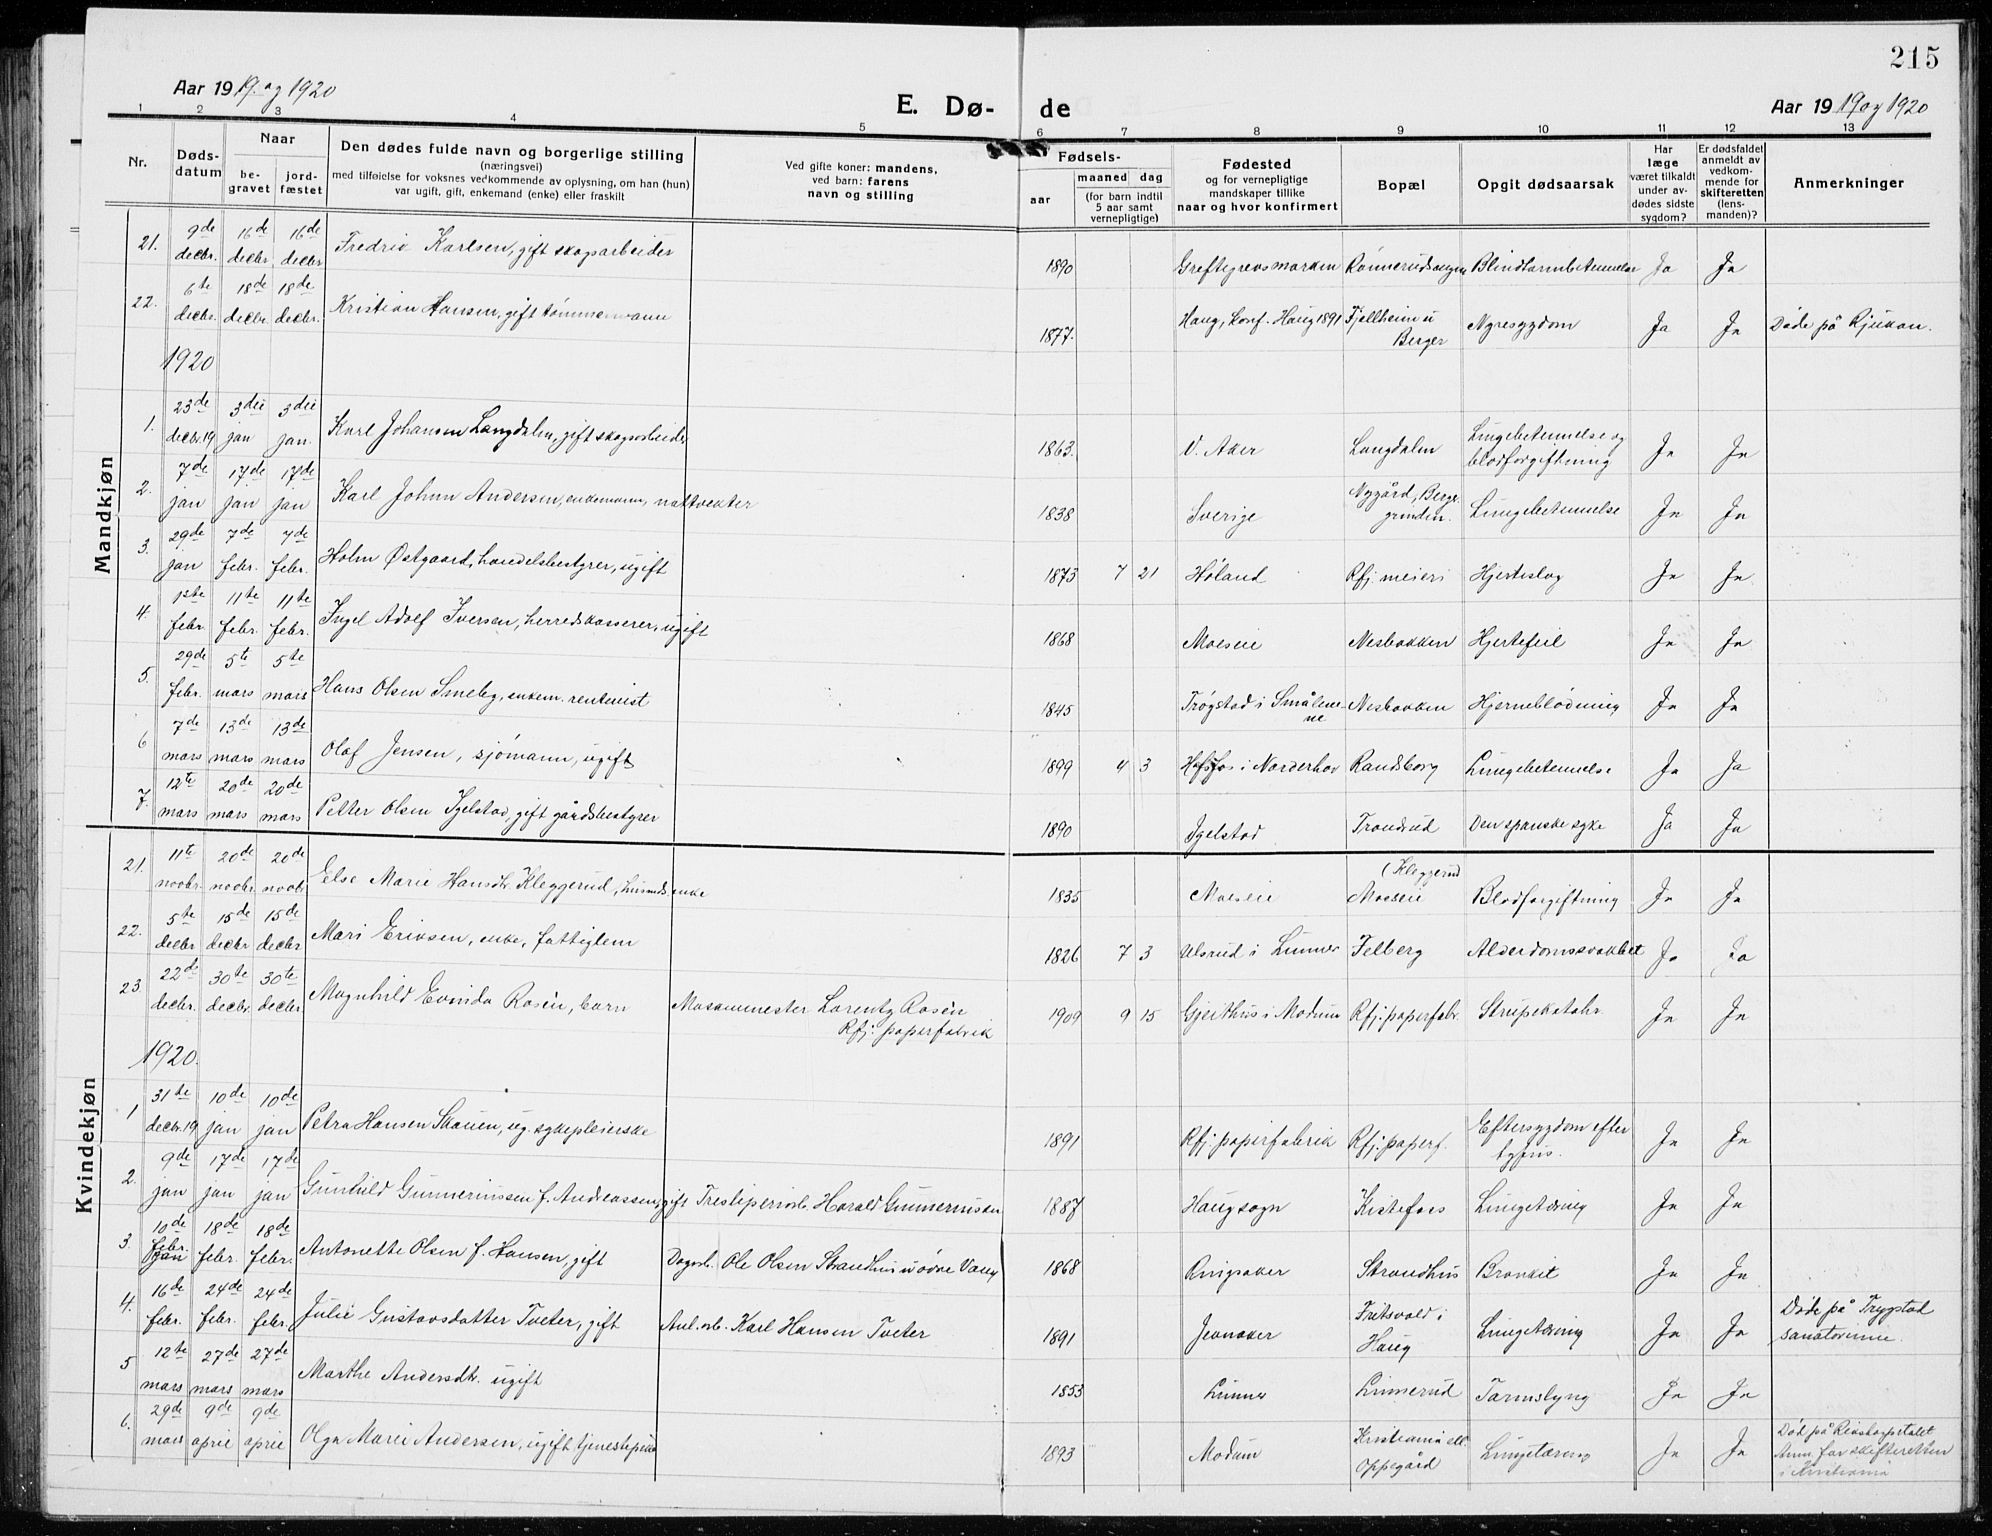 215
Aar 1919. og 1920
E. Dø-
de
Aar 1919 og 1920
1 2 3 4 5 6 7 8 9 10 11 12 13
Nr.
Døds-
datum
Naar
be-
gravet
jord-
fæstet
Den dødes fulde navn og borgerlige stilling
(næringsvei)
med tilføielse for voksnes vedkommende av oplysning, om han (hun)
var ugift, gift, enkemand (enke) eller fraskilt
Ved gifte koner: mandens,
ved barn: farens
navn og stilling
Fødsels-
aar
maaned dag
(for barn indtil
5 aar samt
vernepligtige)
Fødested
og for vernepligtige
mandskaper tillike
naar og hvor konfirmert
Bopæl
Opgit dødsaarsak
Har
læge
været tilkaldt
under av-
dødes sidste
sygdom?
Er dødsfaldet
anmeldt av
vedkom-
mende for
skifteretten
(lens-
manden)?
Anmerkninger
Mandkjøn
21. 9de decbr. 16de decbr. 16de decbr Fredrik Karlsen, gift skogsarbeider 1890 Greftegrevsmarken Rønnerudsengen Blindtarmbetennelse Ja Ja
22. 6te decbr. 18de decbr. 18de decbr. Kristian Hansen, gift tømmermann 1877. Haug, konf. Haug 1891 Fjellheim u Berger Nyresygdom Ja Ja Døde på Rjukan.
1920
1. 23de decbr. 19 3die jan 3die jan. Karl Johansen Langdalen, gift skogsarbeider 1863. V. Aker Langdalen Lungebetennelse og blodforgiftning Ja Ja
2. 7de jan 17de jan 17de jan Karl Johan Andersen, enkemann, nattvekter 1838 Sverige Nygård, Berger grinden. Lungebetennelse Ja Ja
3. 29de jan 7de febr. 7de febr. Holm Østgaard, handelsbestyrer, ugift 1873 7 21 Høland Rfj. meieri Hjerteslag Ja Ja.
4. 1ste febr. 11te febr. 11te febr. Ingel Adolf Iversen, herredskasserer, ugift 1868 Moeseie Nesbakken Hjertefeil Ja Ja
5. 29de febr. 5te mars 5te mars Hans Olsen Smeby, enkem. rentenist 1845 Trøgstad i Smålenene Nesbakken Hjerneblødning Ja Ja
6 7de mars 13de mars 13de mars Olaf Jensen, sjømann, ugift 1899 4 3 Hofsfos i Norderhov Randsborg Lungebetennelse Ja Ja
7. 12te mars 20de mars 20de mars Petter Olsen Igelstad, gift gårdsbestyrer 1890 Igelstad Trondrud Den spanske syke Ja Ja
Kvindekjøn
21. 11te novbr. 20de novbr. 20de novbr Else Marie Hansdtr. Kleggerud, husmdsenke 1835 Moeseie (Kleggerud Moeseie Blodforgiftning Ja Ja
22. 5te decbr 15de decbr 15de decbr Mari Eriksen, enke, fattiglem 1826 7 3 Ulsrud i Lunner Felberg Alderdomssvakhet Ja Ja
23. 22de decbr. 30te decbr. 30te decbr. Magnhild Evinda Rosén, barn Maskinmester Lorentz Rosén Rfj. papirfabrik 1909 9 15 Gjeithus i Modum Rfj. papirfabr. Strupekatarh. Ja Ja
1920.
1 31te decbr. 19 10de jan 10de jan Petra Hansen Skauen, ug. sykepleierske 1891 Rfj. papirfabrik Rfj. papirf. Eftersygdom efter tyfus. Ja Ja
2. 9de jan 17de jan 17de jan Gunhild Gunneriussen f. Andreassen, gift Tresliperiarb. Harald Gunneriussen 1887 Haug sogn Kistefoss Lungetæring Ja Ja
3. 10de febr. jan 18de febr. 18de febr. Antonette Olsen f. Hansen, gift Dagarb. Ole Olsen Strandhus u øvre Vang 1868 Ringsaker Strandhus Bronkit Ja Ja
4. 16de febr. 24de febr. 24de febr. Julie Gustavsdatter Tveter, gift Anl. arb. Karl Hansen Tveter 1891 Jevnaker Fritsvold i Haug Lungetæring Ja Ja Døde på Trygstad sanatorium.
5 12te mars 27de mars 27de mars Marthe Andersdtr. ugift 1853 Lunner Linnerud Tarmslyng Ja Ja
6. 29de mars 9de april 9de april Olga Marie Andersen, ugift tjenestepike 1893 Modum Kristiania ell. Oppegård Lungetæring Ja Ja Død på Rikshospitalet Anm. for skifteretten i Kristiania